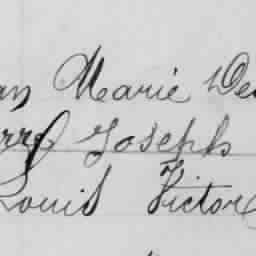 an Marie De
rre Joseph
Louis Victor